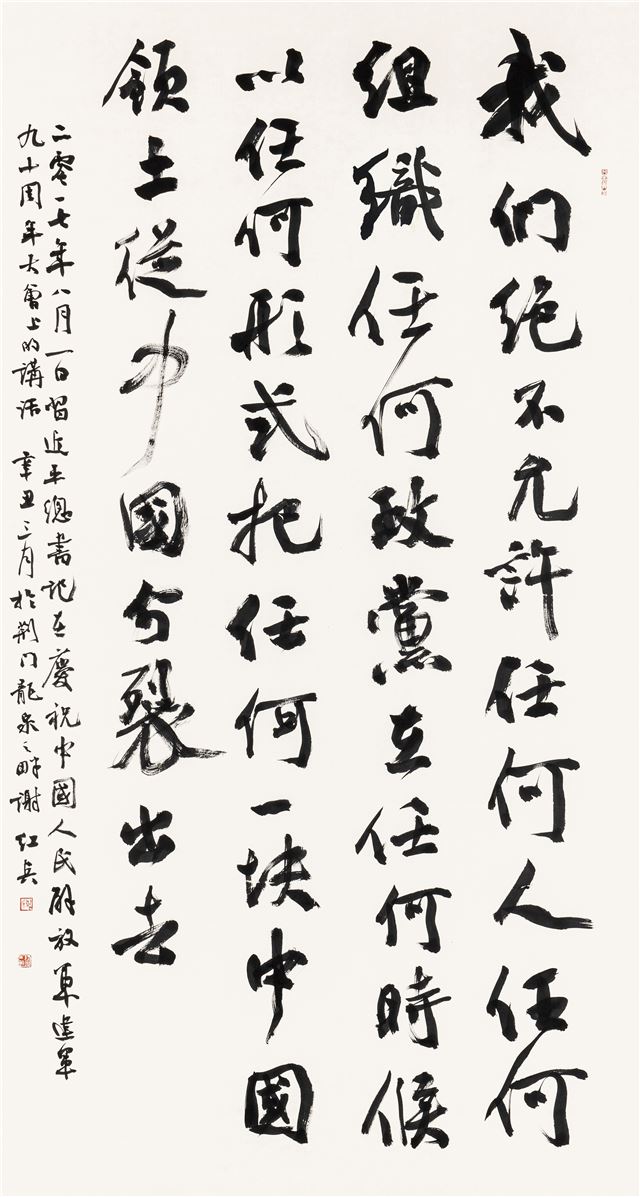 我们绝不允許任何人任何
组織任何政黨在任何時候
以任何形式把任何一块中國
领土從中國分裂出去
二零一七年八月一日習近平總書記在慶祝中國人民解放軍建軍
九十周年大會上的講話 辛丑三月於荆门龍泉之畔謝红兵